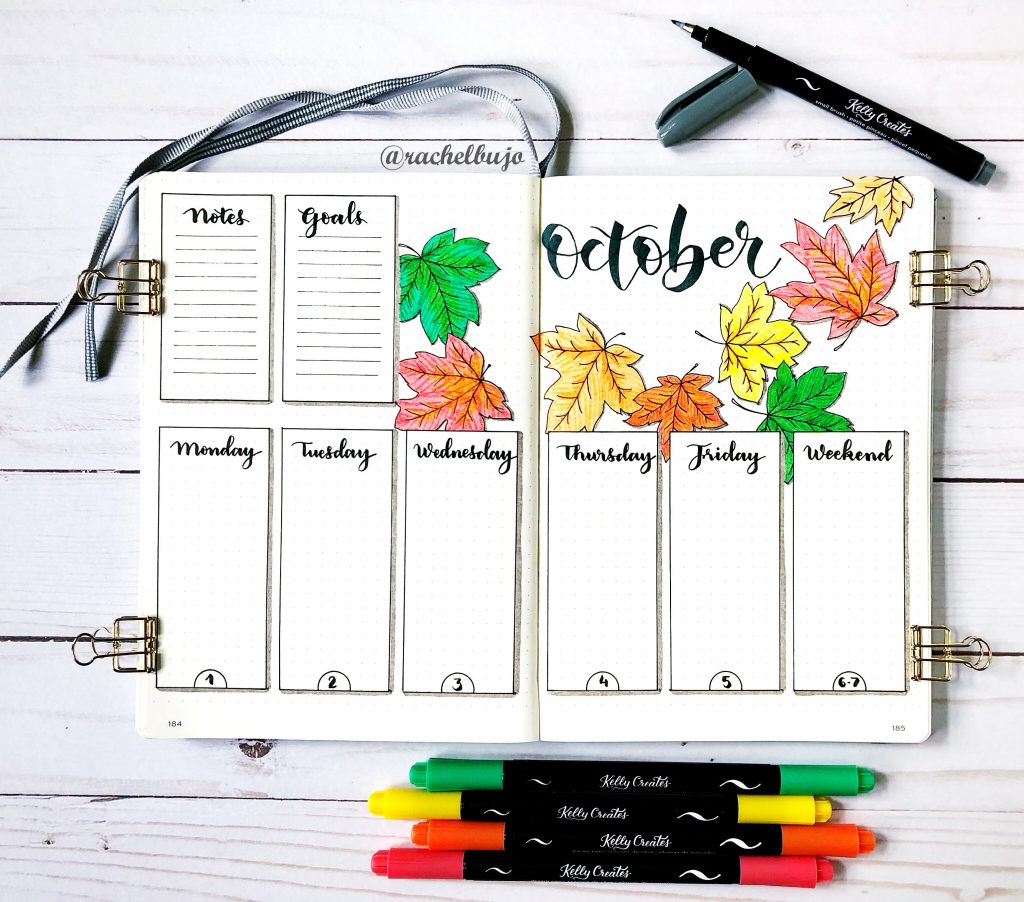 @rachelbujo
Kelly Creates
small brush • petite pinceau • pincel pequeño
Notes
Goals
October
Monday
Tuesday
Wednesday
Thursday
Friday
Weekend
1
2
3
4
5
6-7
184
185
Kelly Creates
Kelly Creates
Kelly Creates
Kelly Creates